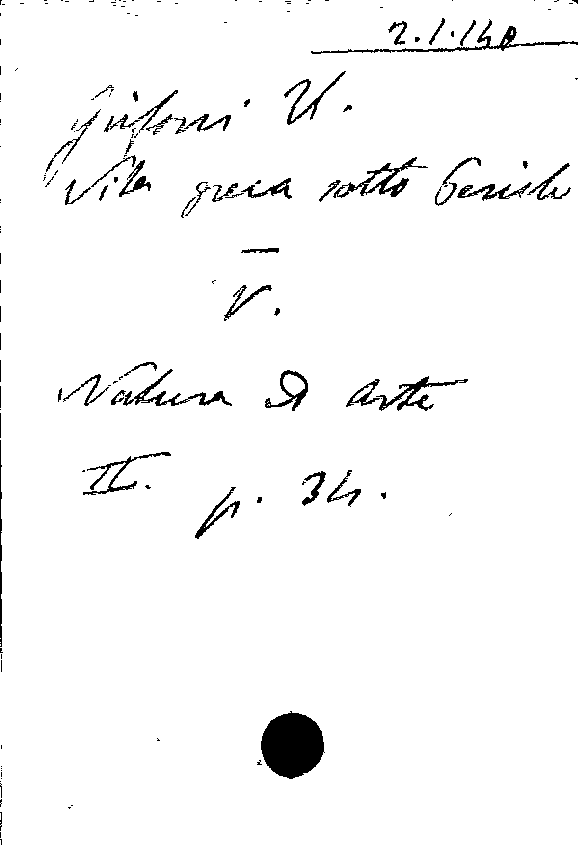 2.1.140
Grifoni U.
Vita greca sotto Pericle
—
V.
Natura ed arte
II. p. 34.